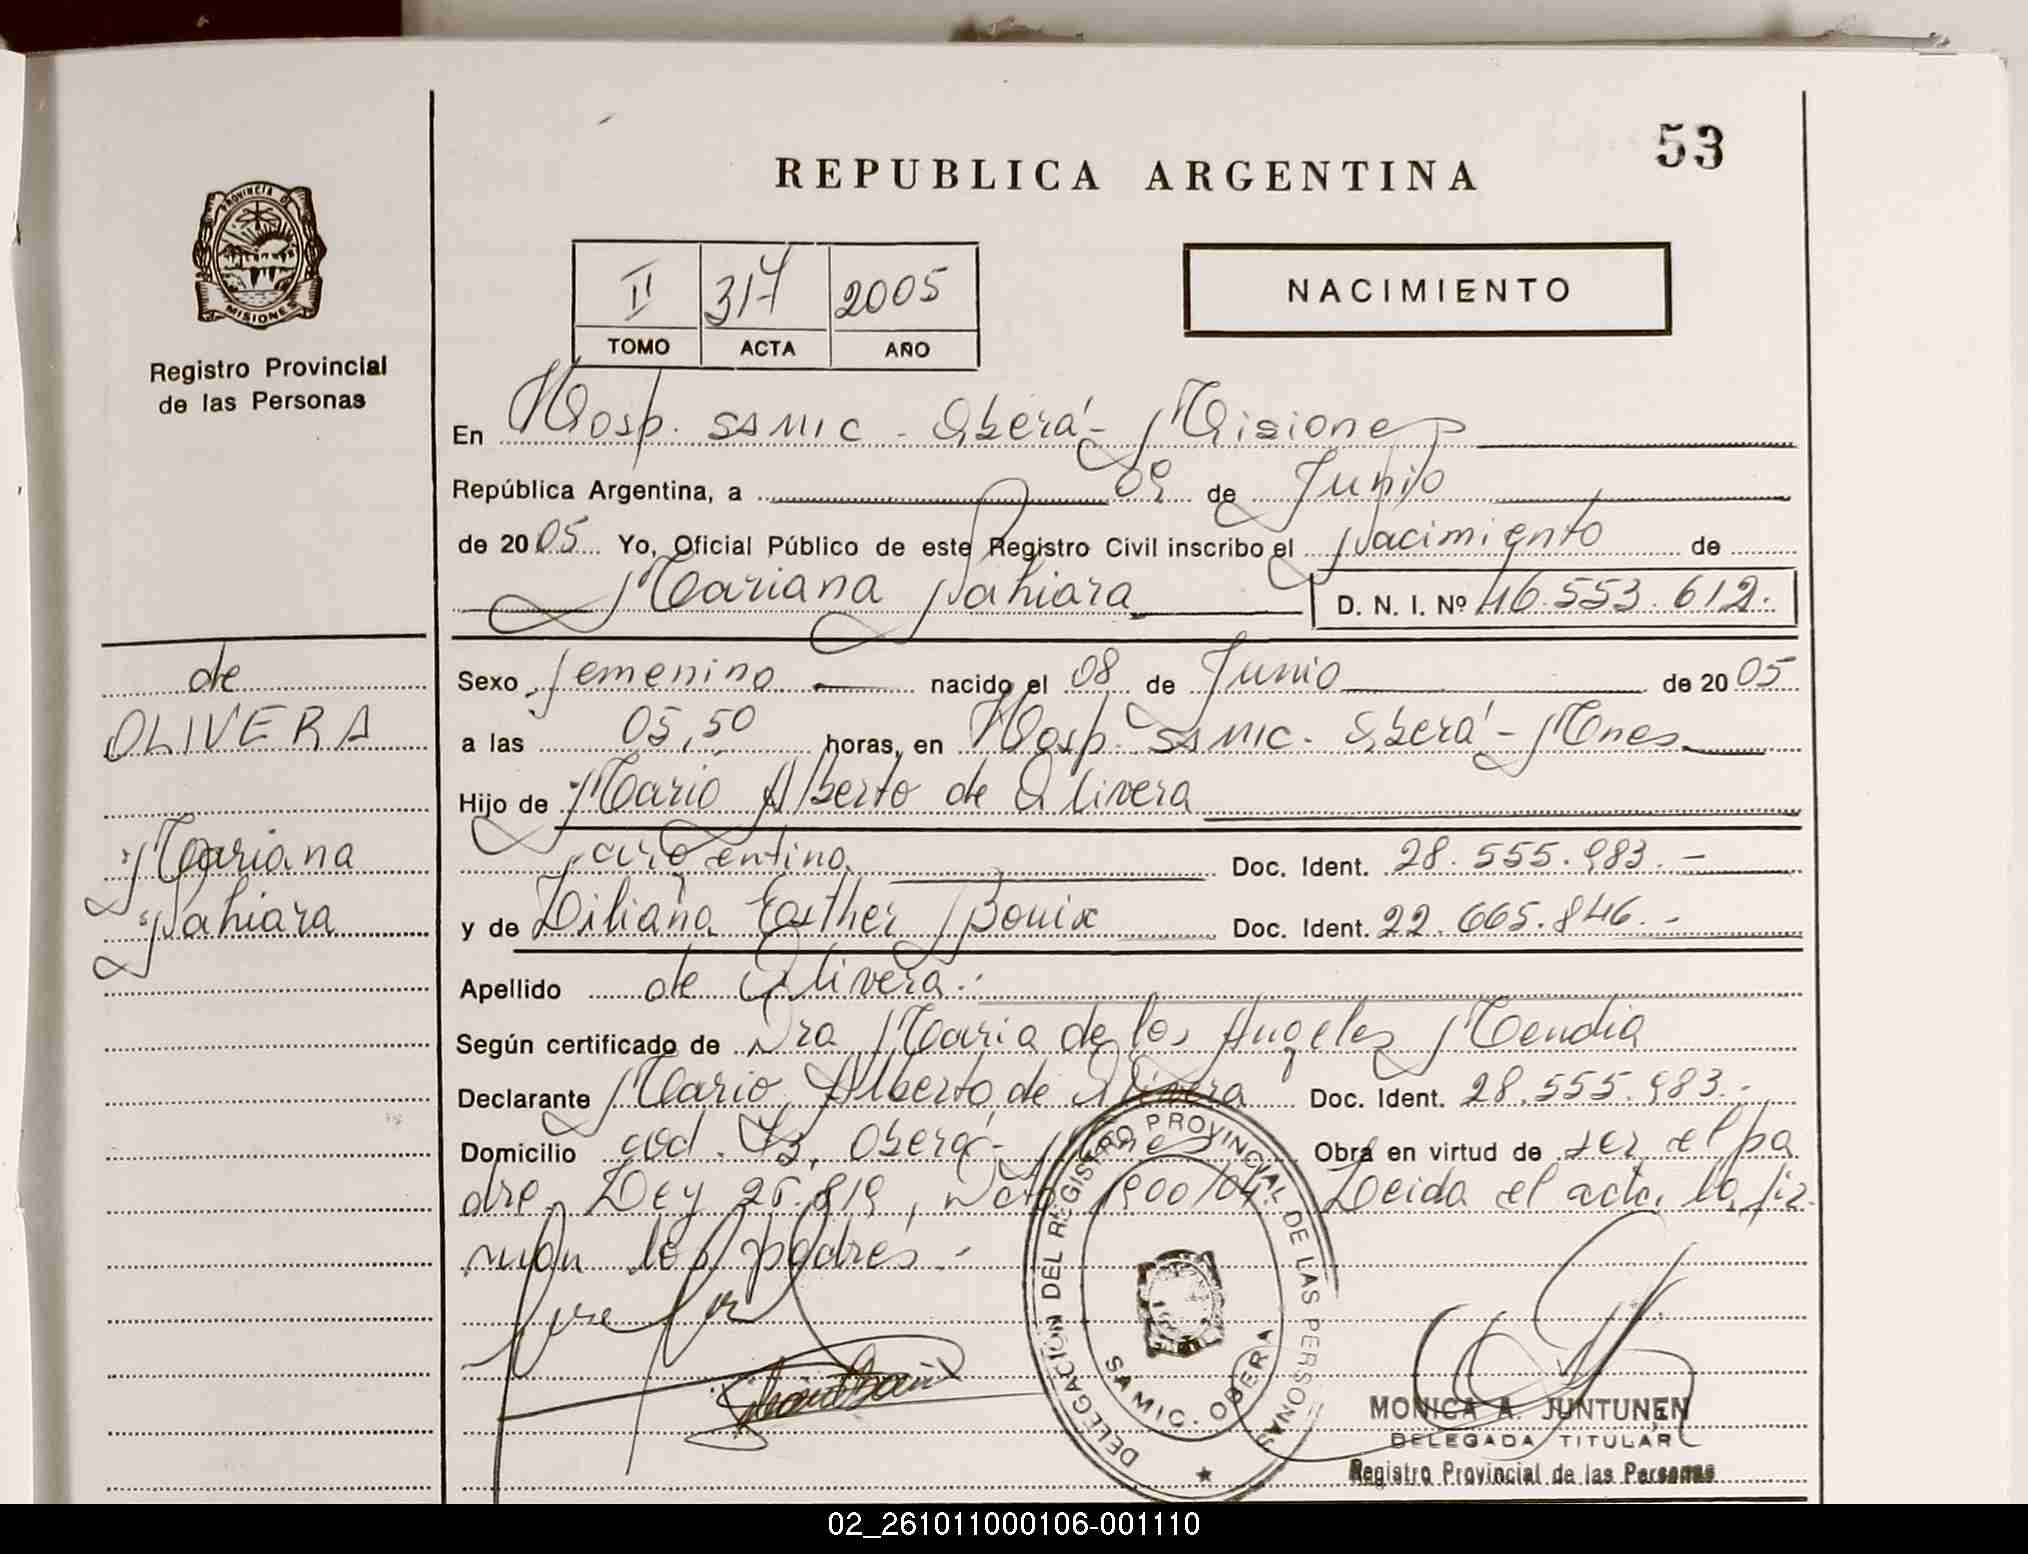 53
REPUBLICA ARGENTINA
PROVINCIA DE MISIONES
Registro Provincial
de las Personas
II 317 2005
TOMO ACTA AÑO
NACIMIENTO
En Hosp. SAMIC - Oberá - Misiones
República Argentina, a 09 de Junio
de 2005 Yo, Oficial Público de este Registro Civil inscribo el Nacimiento de
Mariana Nahiara D. N. I. Nº 46.553.612.
de
OLIVERA
Mariana
Nahiara
Sexo femenino nacido el 08 de Junio de 2005
a las 05,50 horas, en Hosp. SAMIC. Oberá - Mnes
Hijo de Mario Alberto de Olivera
argentino Doc. Ident. 28.555.983.-
y de Liliana Esther Bouix Doc. Ident. 22.665.846.-
Apellido de Olivera.
Según certificado de Dra Maria de los Angeles Mendia
Declarante Mario Alberto de Olivera Doc. Ident. 28.555.983.-
Domicilio Oberá - Mnes Obra en virtud de ser el pa
dre. Ley 25.819, 1900/04. Leida el acta, la fir-
man los padres.-
DELEGACION DEL REGISTRO PROVINCIAL DE LAS PERSONAS
SAMIC. OBERA
MONICA A. JUNTUNEN
DELEGADA TITULAR
Registro Provincial de las Personas
02_261011000106-001110